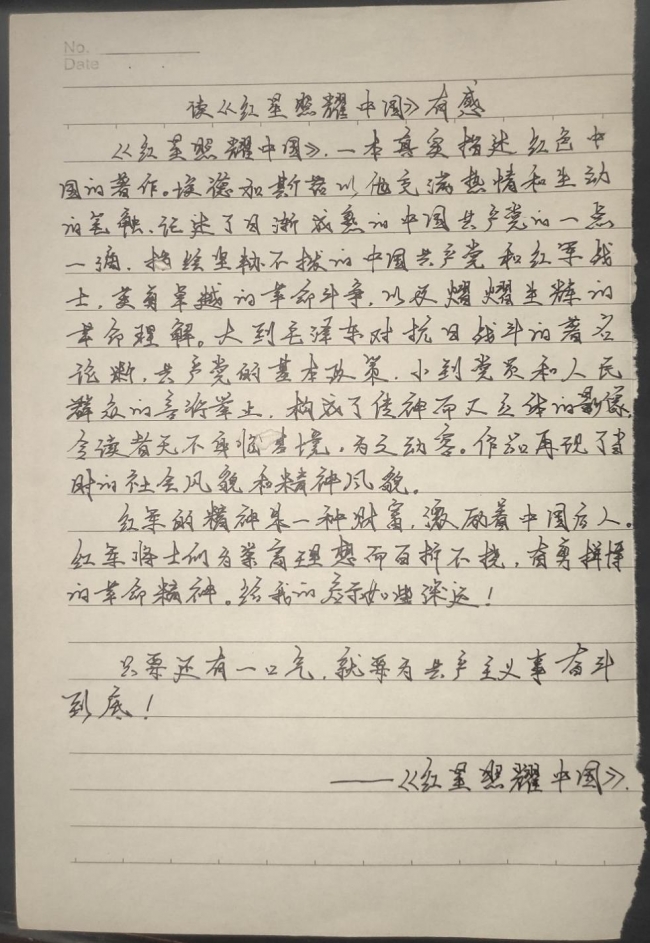 No.
Date
读《红星照耀中国》有感
《红星照耀中国》,一本真实描述红色中
国的著作。埃德加斯诺以他充满热情和生动
的笔触,记述了日渐成熟的中国共产党的一点
一滴,描绘坚韧不拔的中国共产党和红军战
士,英勇卓越的革命斗争,以及熠耀生辉的
革命理解。大到毛泽东对抗日战斗的著名
论断,共产党的基本政策,小到党员和人民
群众的言行举止,构成了传神而又立体的影像,
令读者无不身临其境,为之动容。作品再现了当
时的社会风貌和精神风貌。
红军的精神是一种财富,激励着中国后人。
红军将士们为崇高理想而百折不挠,有勇拼搏
的革命精神。给我的启示如此深远!
只要还有一口气,就要为共产主义事奋斗
到底!
——《红星照耀中国》.